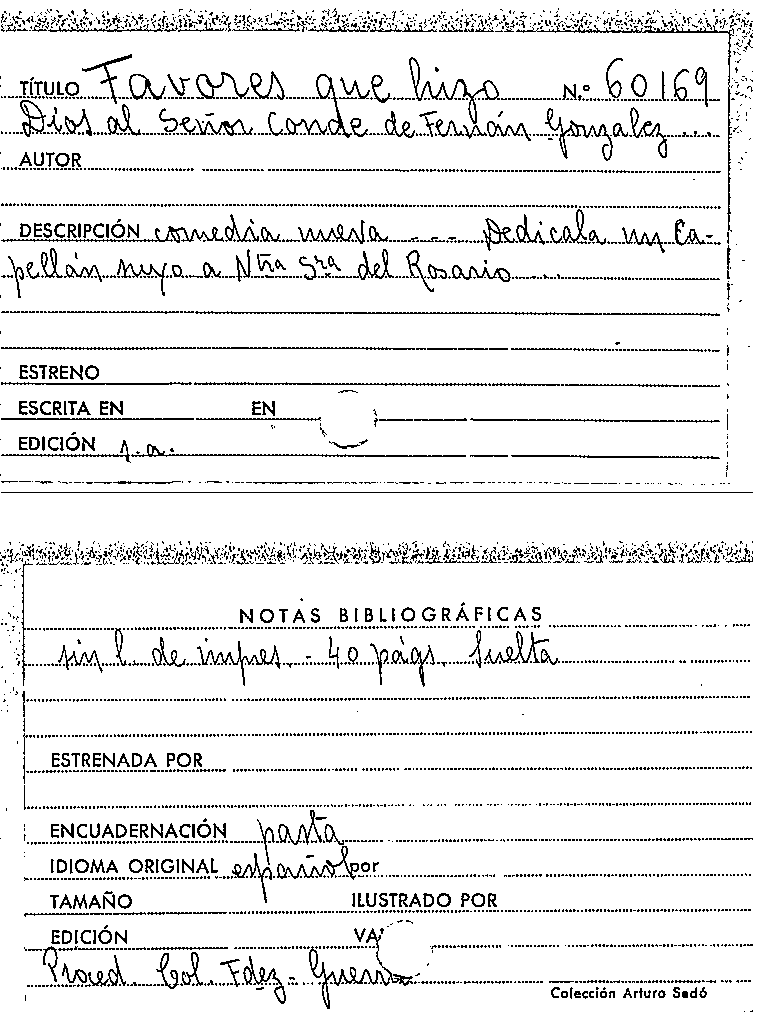 TÍTULO Favores que hizo N.º 60169
Dios al Señor Conde de Fernán Gonzalez ...
AUTOR
DESCRIPCIÓN comedia nueva ... Dedicala un Ca-
pellán suyo a Ntra Sra del Rosario ...
ESTRENO
ESCRITA EN EN
EDICIÓN s.a.
NOTAS BIBLIOGRÁFICAS
sin l. de impres. - 40 págs. Suelta
ESTRENADA POR
ENCUADERNACIÓN pasta
IDIOMA ORIGINAL español por
TAMAÑO ILUSTRADO POR
EDICIÓN
Proced. Col. Fdez-Guerra
Colección Arturo Sedó